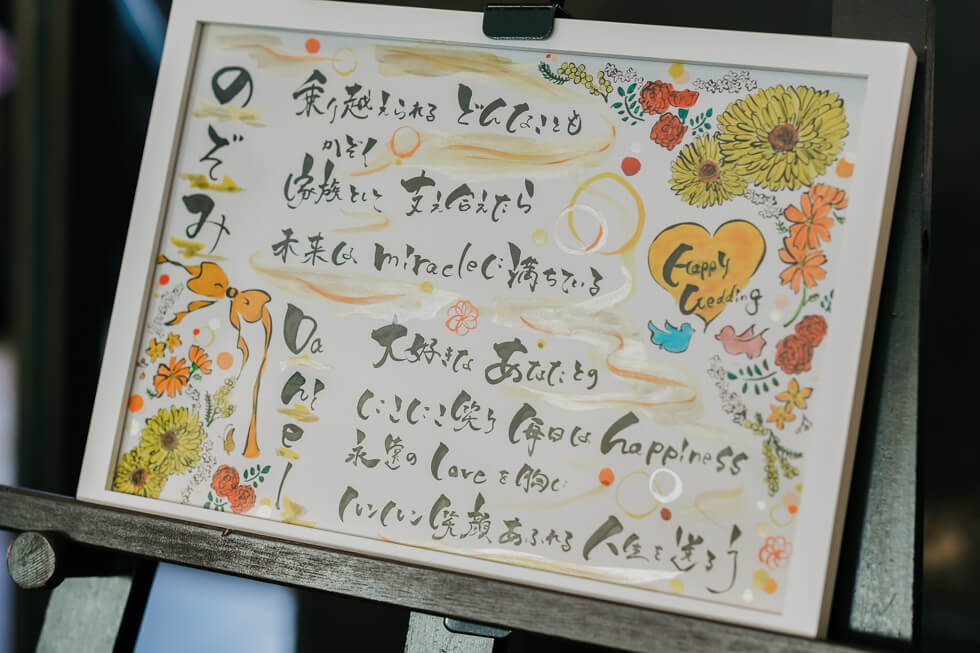 のぞみ
乗り越えられる どんなことも
かぞく
家族として 支え合えたら
未来は miracleに満ちている
Happy
Wedding
Daniel
大好きな あなたとの
にこにこ笑う 毎日は happiness
永遠の Loveを胸に
ルンルン笑顔あふれる 人生を送ろう